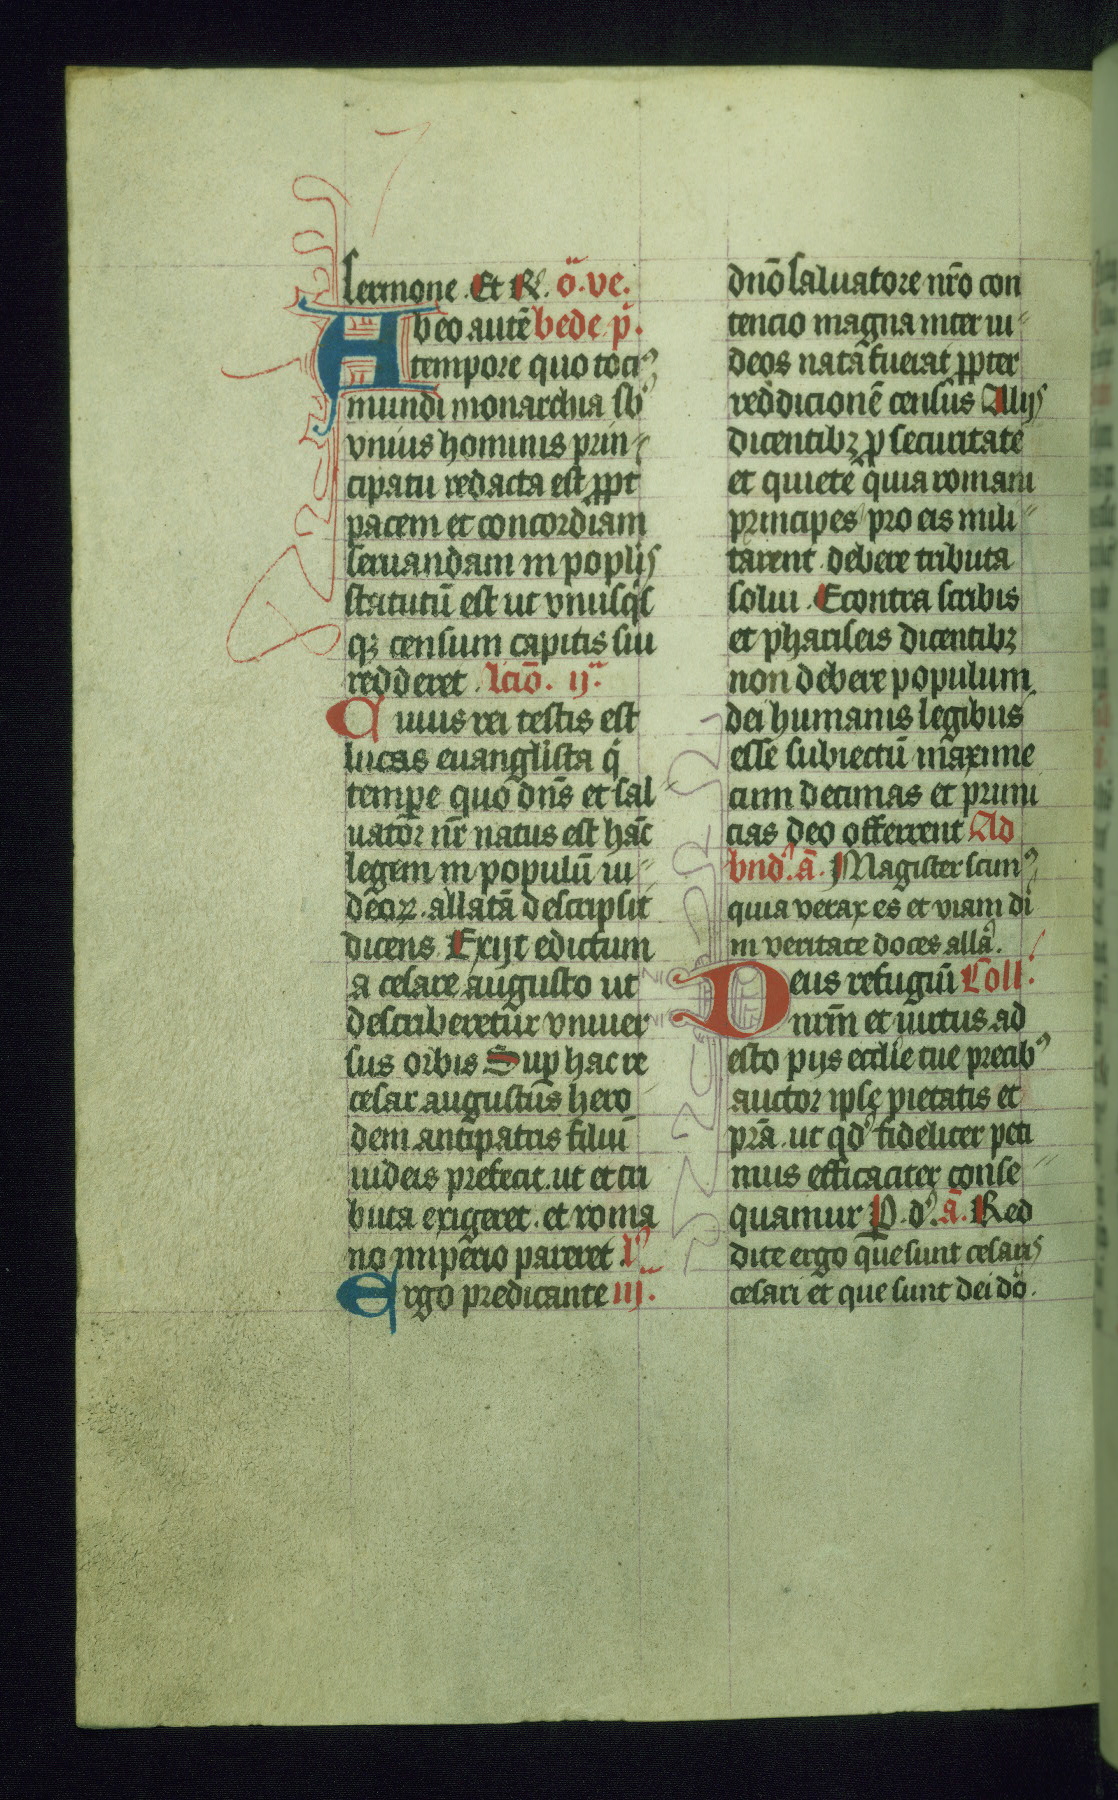 sermone. Et R̃. ō. ve.
Ab eo autē bede p̄.
tempore quo toci᷒
mundi monarchia sb᷒
vnius hominis prin
cipatu redacta est ꝓpt
pacem et concordiam
seruandam in poplis
statutū est ut vnusq̄s
qꝫ censum capitis sui
redderet. lcīo. ij.
Cuius rei testis est
lucas euanglista q̇
temꝑe quo dn̄s et sal
uator nr̄ natus est hāc
legem in populū iu
deoꝝ. allatā descripsit
dicens. Exijt edictum
a cesare augusto ut
describeretur vniuer
sus orbis Suꝑ hac re
cesar augustus hero
dem antipatris filiū
iudeis prefecit. ut et tri
buta exigeret. et roma
no imperio pareret. l᷒
Ergo predicante iij.
dn̄o saluatore nr̄o con
tencio magna inter iu
deos nata fuerat ꝓpter
reddicionē census Alijs
dicentibꝫ ꝓ securitate
et quiete quia romani
principes pro eis mili
tarent. debere tributa
solui. Econtra scribis
et phariseis dicentibꝫ
non debere populum
dei humanis legibus
esse subiectū maxime
cum decimas et primi
cias deo offerrent Ad
bnd᷒. ā. Magister scim᷒
quia verax es et viam di
in veritate doces allā.
Deus refugiū Coll.
nrm̄ et uirtus ad
esto pijs eccl̄ie tue precib᷒
auctor ipse pietatis et
prā. ut qd᷒ fideliter peti
mus efficaciter conse
quamur P. d᷒. ā. Red
dite ergo que sunt cesaris
cesari et que sunt dei dō.